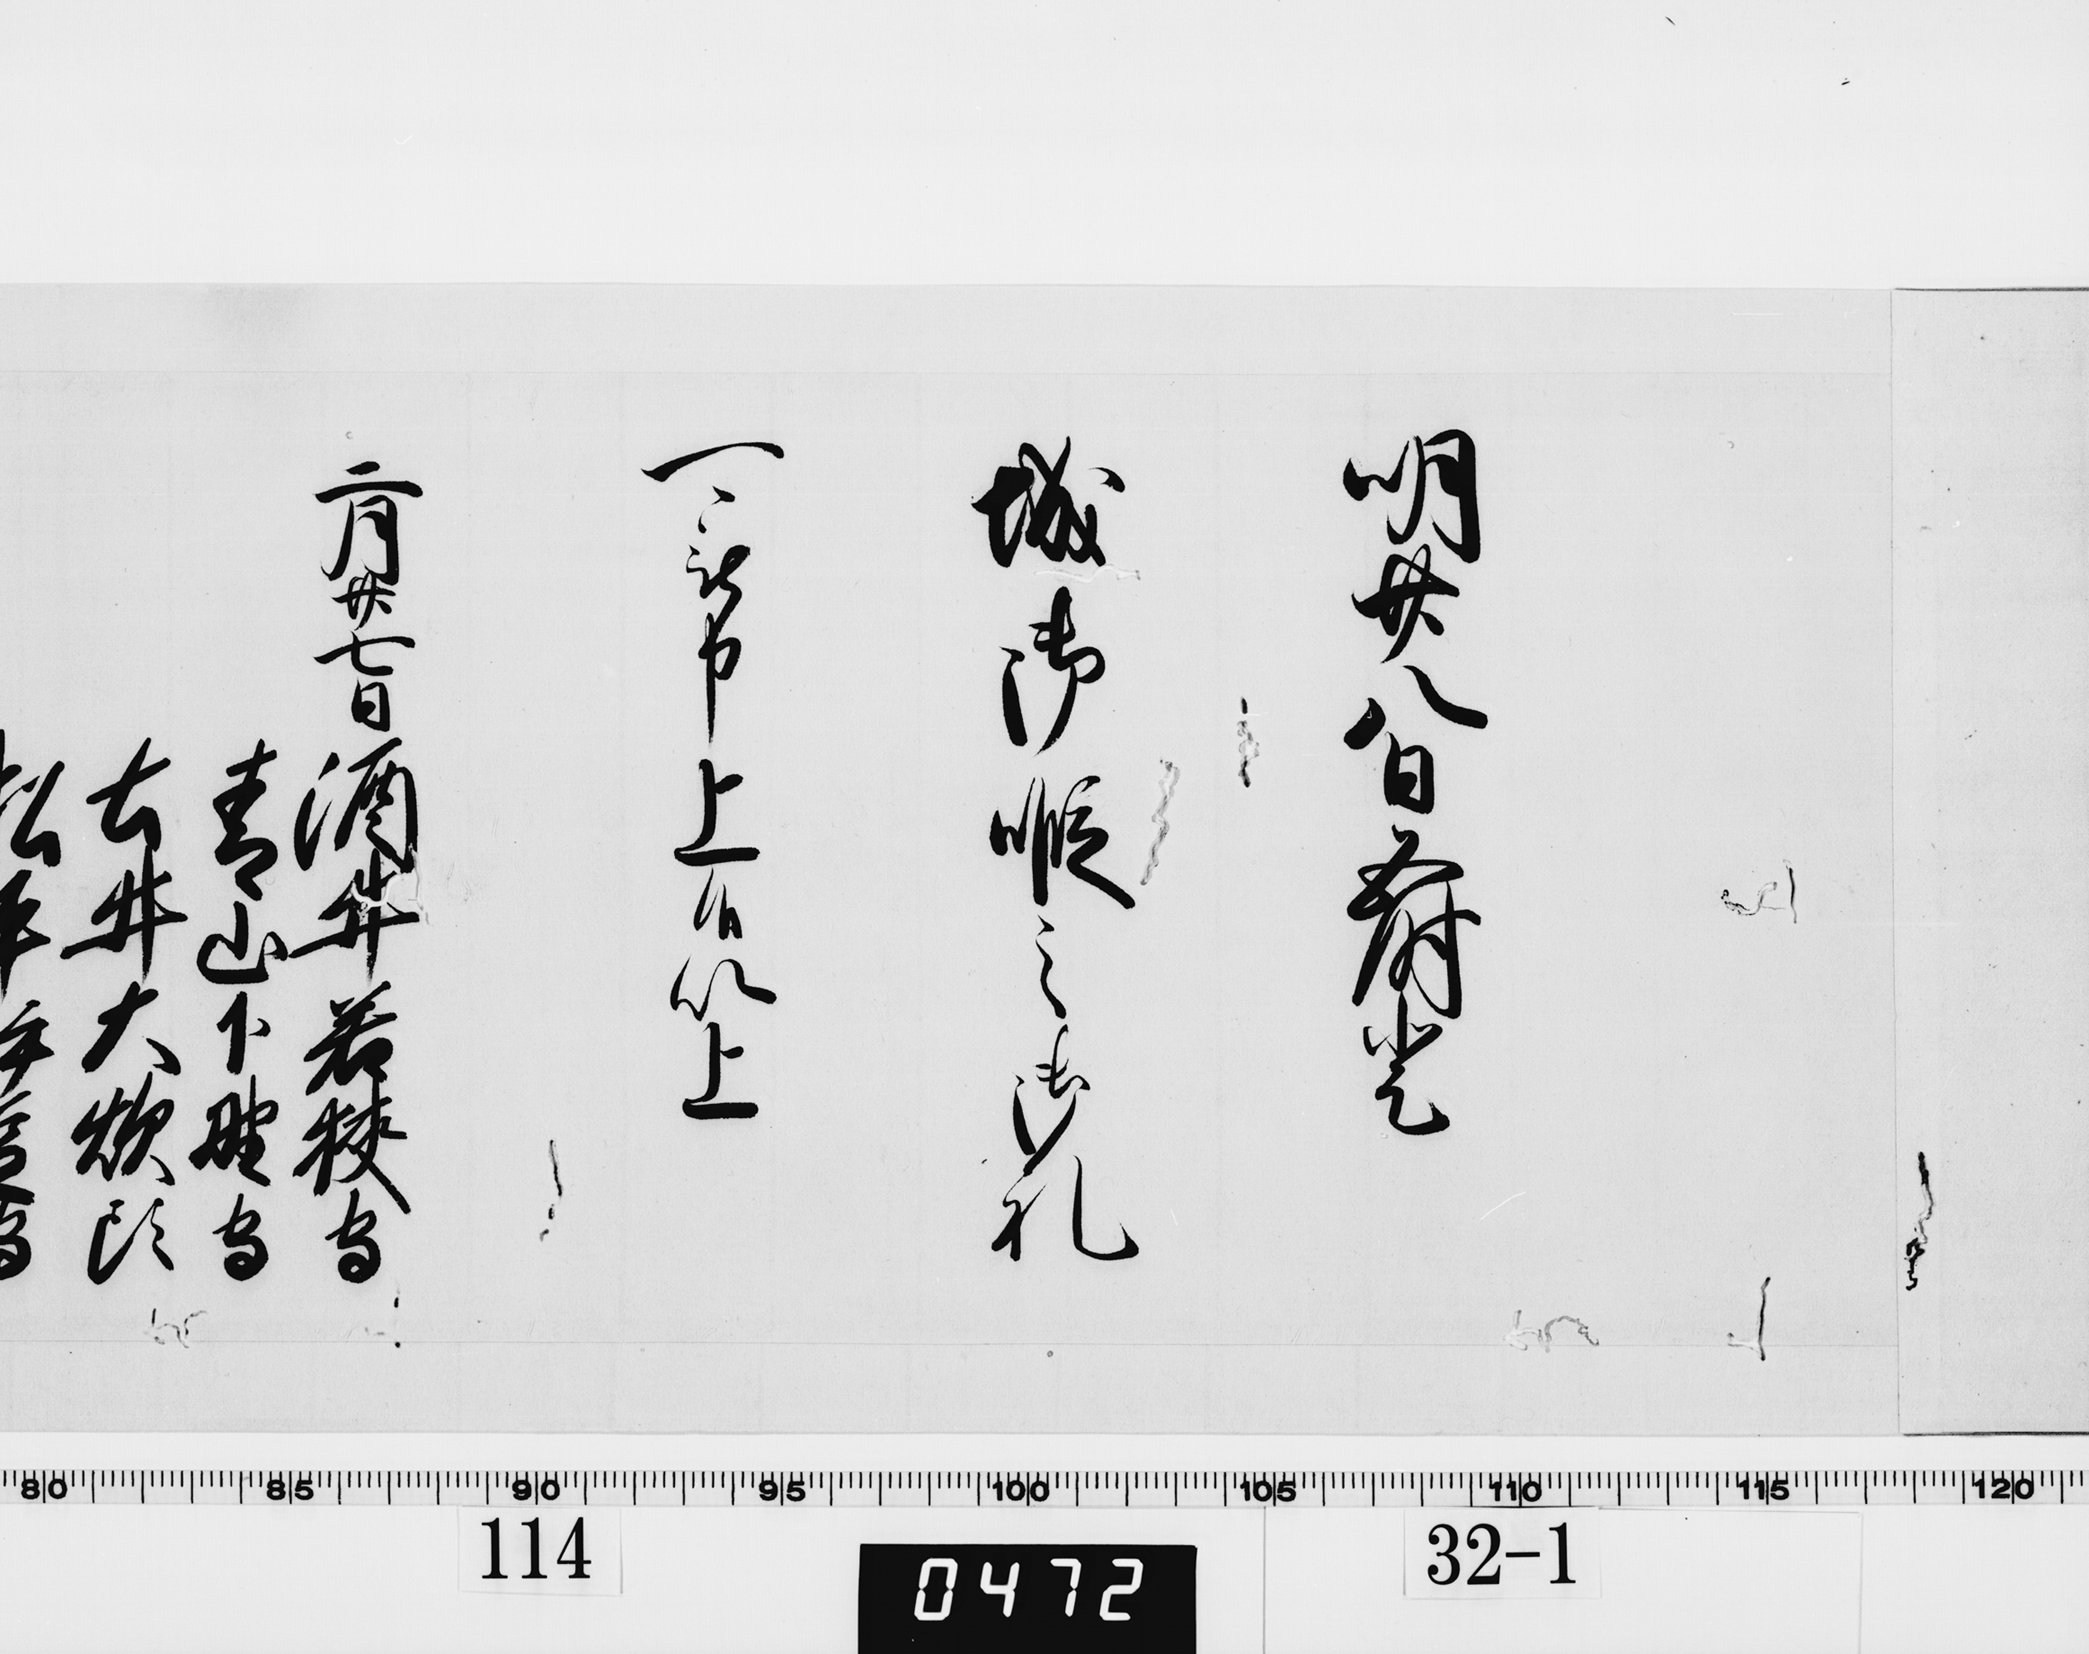 明廿八日五時登
城御暇之御礼
可被申上候以上
二月廿七日 酒井若狭守
青山下野守
土井大炊頭
松平伊豆守
80 85 90 95 100 105 110 115 120
114 0472 32-1